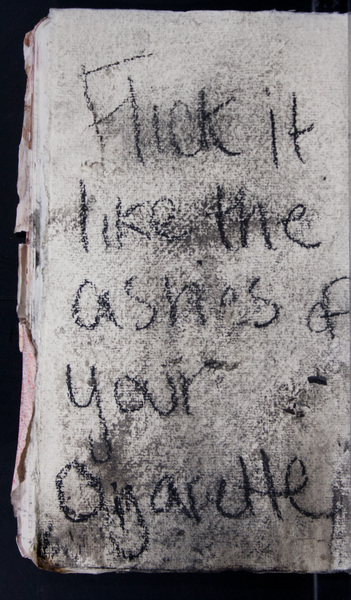 Flick it
like the
ashes of
your
Cigarette